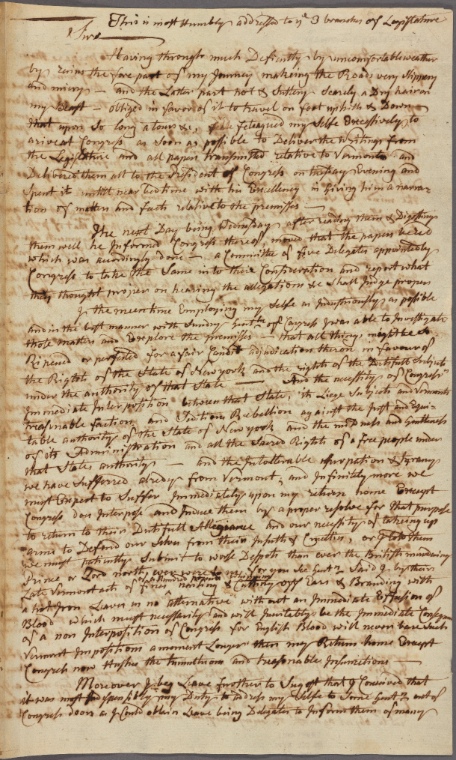 This is most Humbly addressed to ye 3 branches of Legislature
Sirs
Having through much Difficulty by uncomfortable weather
by rains the fore part of my Journey makeing the Roads very Slippery
and miry — and the Later part hot & Sultry Scarcly a Dry hair in
my — obliged in favor of it to travel on foot up hills & Down
that upon So long a tour & fateagued my Selfe Excessively to
arive at Congress as Soon as possible to Deliver the writings from
the Legislature and all papers transmitted relative to Vermont and
Delivered them all to the President of Congress on thursday Evening and
Spent it untill near bed time with his Excellency in Giving him a narra-
tion of matters and facts relative to the premises —
The next Day being after reading them & Digesting
them well he Informed Congress thereof, moved that the papers be red
which was accordingly done — a Committee of five Delegates appointed by
Congress to take the Same into their Consideration and report what
they thought proper on hearing the allegations & Shall Judge proper
In the meantime Employing my Selfe as Industriously as possible
and in the best manner with Sundry Gentn of Congress I was able to Investigate
those matters and Explore the premises — that all things might be
Ripened or prepared for a fair Candid adjudication thereon in favour of
the Rights of the State of New york and the rights of the Dutifull Subjects
under the authority of that State — And the necessity of Congress's
Immediate Interposition between that State, its Liege Subjects and Vermonts
treasonable faction and Rebellion against the Just and Equi-
table authority of the State of New york and the and Gentleness
of its Administration and all the Sacred Rights of a free people under
that States authority — and the Intollerable usurpation & tyranny
we have Suffered already from Vermont, and Infinitely more we
must Expect to Suffer Immediately upon my return home Except
Congress does Interpose and Induce them by a proper resolve for that purpose
to return to their Dutifull Allegiance and our necessity of takeing up
arms to Defend our Selves from their Insults & Cruelties, or Else
Be must patiently Submit to worse Despots than ever the British
Prince or Lord north, ever were to me for you See Gentn Said I, by their
Late Vermont act of fines & Cutting off Ears & Branding with
a hot Iron Leaves us no alternative without an Immediate Effusion of
Blood which must necessarily and will Inevitably be the Immediate
of a non Interposition of Congress for English Blood will never bear Such
Vermont Impositions a moment Longer then my Return home Except
Congress now Hushes the tumultuous and treasonable Insurrections —
Moreover I beg Leave further to Sugest that I Conceived that
it was most Indispensibly my Duty to address my Selfe to Some Gentn out of
Congress doors as I Could obtain Leave being Delegates to Inform them of many